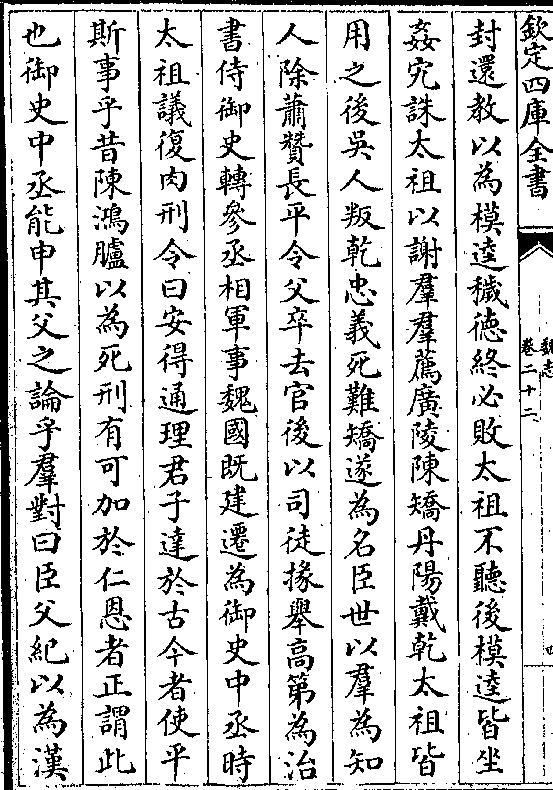 欽定四庫全書
魏志
卷二十二
四
封還教以為模逵穢德終必敗太祖不聽後模逵皆坐
姦宄誅太祖以謝羣羣薦廣陵陳矯丹陽戴乾太祖皆
用之後吳人叛乾忠義死難矯遂為名臣世以羣為知
人除蕭贊長平令父卒去官後以司徒掾舉高第為治
書侍御史轉參丞相軍事魏國既建遷為御史中丞時
太祖議復肉刑令曰安得通理君子達於古今者使平
斯事乎昔陳鴻臚以為死刑有可加於仁恩者正謂此
也御史中丞能申其父之論乎羣對曰臣父紀以為漢